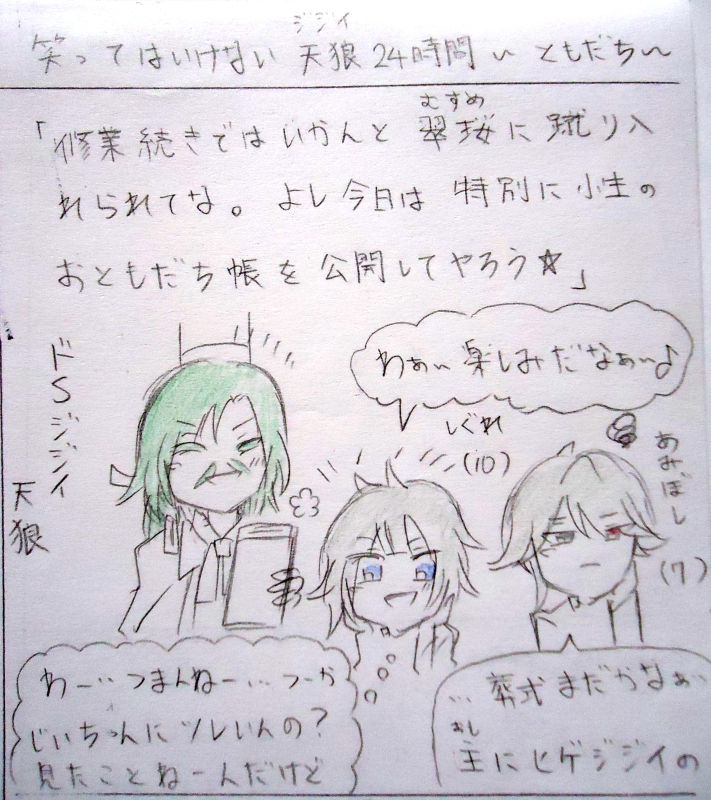 ジジイ
笑ってはいけない 天狼24時間 〜ともだち〜
むすめ
「修業続きではいかんと 翠桜に蹴り入
れられてな。よし今日は 特別に小生の
おともだち帳を公開してやろう☆」
ドSジジイ
天狼
わぁ〜楽しみだなぁ〜♪
しぐれ
(10)
あみぼし
(7)
わー…つまんねー…つーか
じいちゃんにツレいんの?
見たことねーんだけど
…葬式まだかなぁ〜
おし
主にヒゲジジイの